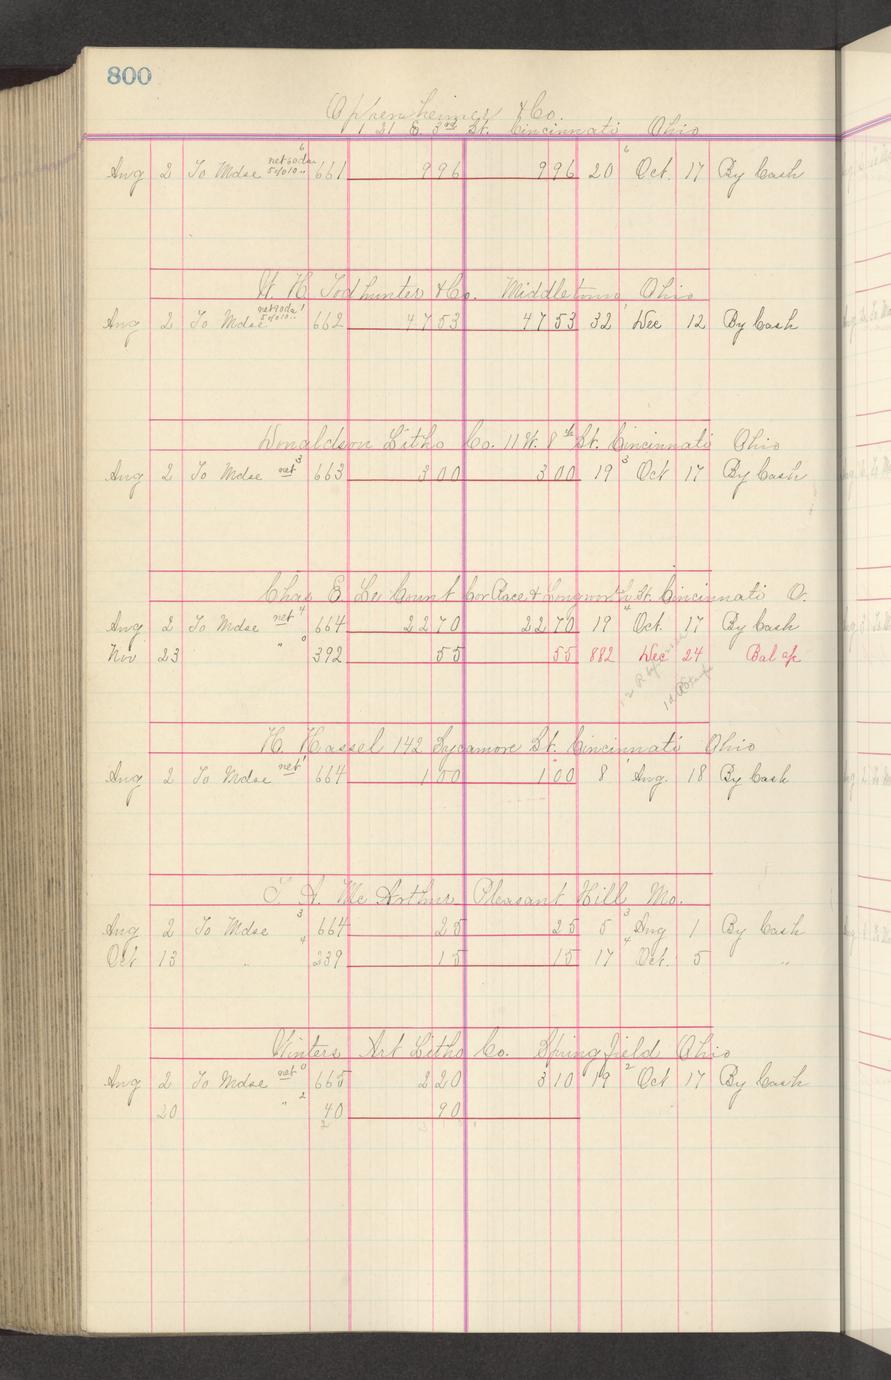 800
Oppenheimer & Co.
121 E. 3rd St. Cincinnati Ohio
Aug 2 To Mdse net 60 da 5% 10 " 6 661 996 996 20 6 Oct. 17 By Cash
W. H. Todhunter & Co. Middletown Ohio
Aug 2 To Mdse net 90 da 5% 10 " 1 662 4753 4753 32 1 Dec 12 By Cash
Donaldson Litho Co. 11 W. 8th St. Cincinnati Ohio
Aug 2 To Mdse net 3 663 300 300 19 3 Oct 17 By Cash
Chas E. Le Count Cor Race & Longworth St. Cincinnati O.
Aug 2 To Mdse net 4 664 2270 2270 19 4 Oct. 17 By Cash
Nov 23 " 0 392 55 55 882 Dec 24 Bal a/c
H. Hassel 142 Sycamore St. Cincinnati Ohio
Aug 2 To Mdse net 1 664 100 100 8 1 Aug. 18 By Cash
A. Mc Arthur Pleasant Hill Mo.
Aug 2 To Mdse 3 664 25 25 5 3 Aug 1 By Cash
Oct 13 " 4 239 15 15 17 4 Oct. 5 "
Winters Art Litho Co. Springfield Ohio
Aug 2 To Mdse net 0 665 220 310 19 2 Oct 17 By Cash
20 " 2 40 90
2